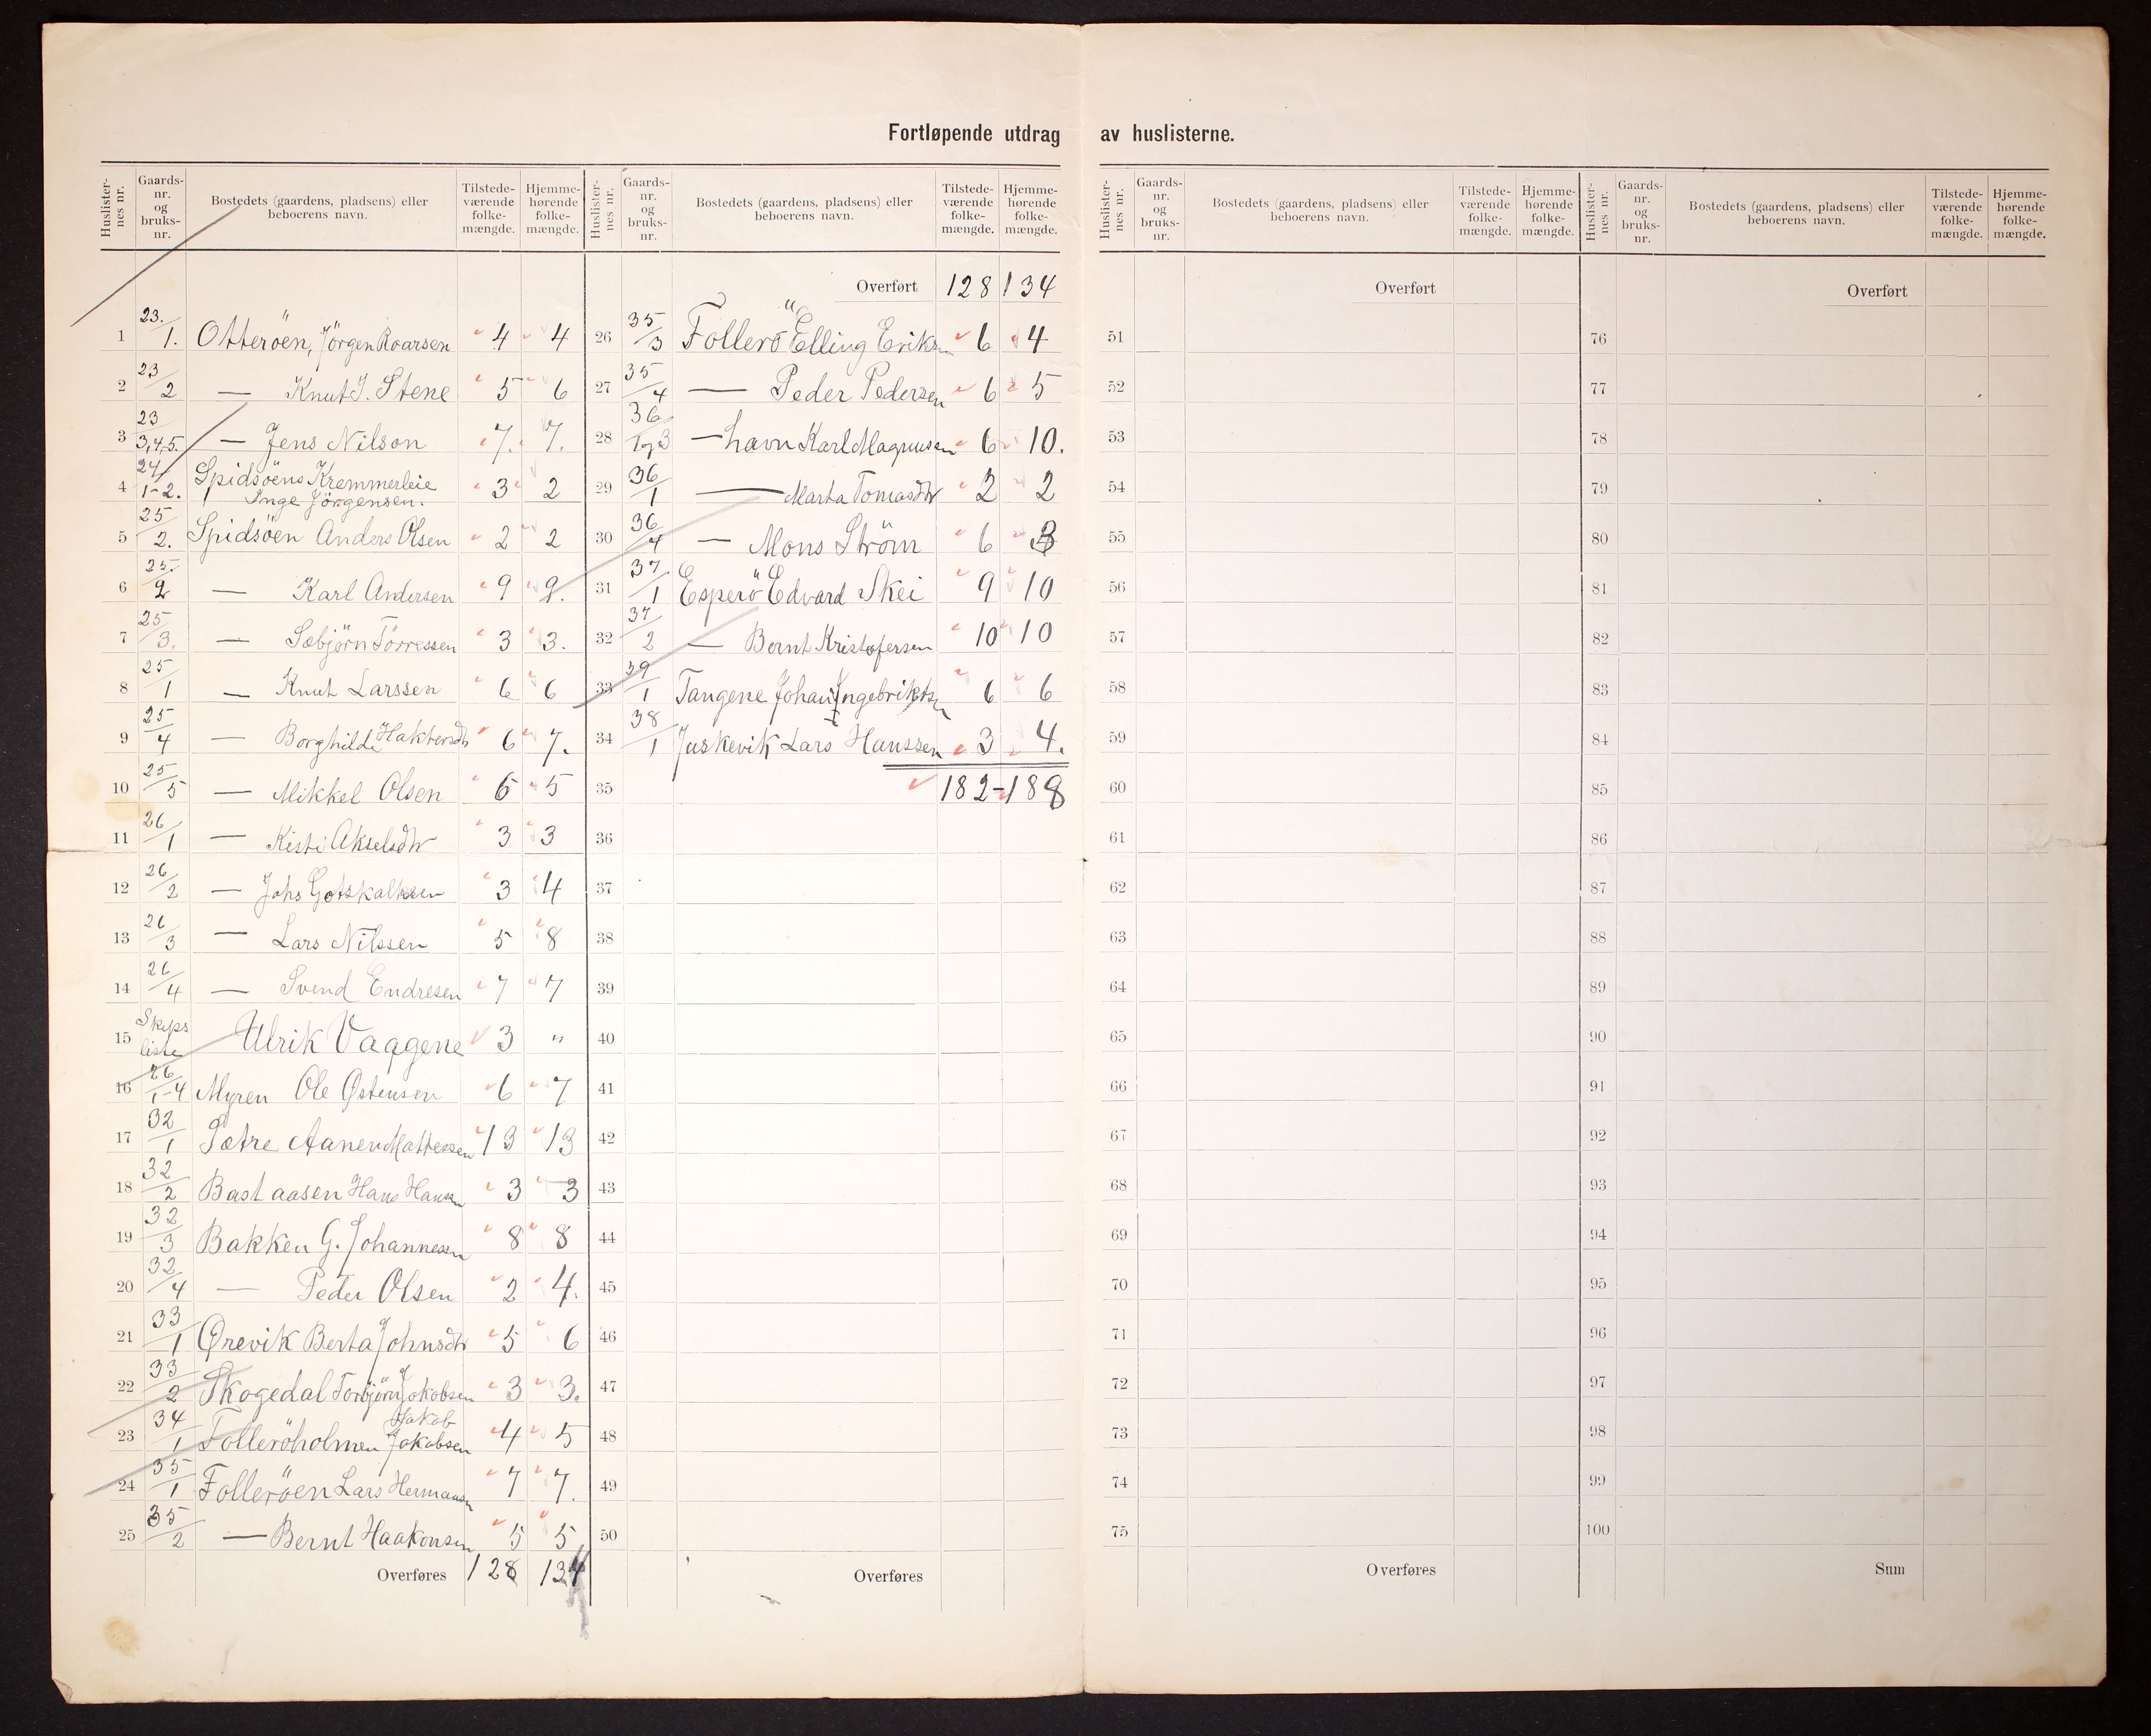 Fortløpende utdrag av huslisterne.
Huslister-nes nr. | Gaards-nr. og bruks-nr. | Bostedets (gaardens, pladsens) eller beboerens navn. | Tilstede-værende folke-mængde. | Hjemme-hørende folke-mængde.
1 23./1. Otteröen, Jörgen Roarsen 4 4
2 23/2 — Knut J. Stene 5 6
3 23/3,4,5. — Jens Nilson 7. 7.
4 24/1-2. Spidsöens Kremmerleie
Inge Jörgensen. 3 2
5 25/2. Spidsöen Anders Olsen 2 2
6 25./2 — Karl Andersen 9 9.
7 25/3. — Sæbjörn Törressen 3 3.
8 25/1 — Knut Larssen 6 6
9 25/4 — Borghilde 6 7.
10 25/5 — Mikkel Olsen 6 5
11 26/1 — Kisti Akselsdtr 3 3
12 26/2 — Johs Gotskalksen 3 4
13 26/3 — Lars Nilssen 5 8
14 26/4 — Svend Endresen 7 7
15 Skips liste Ulrik Vaagene 3 "
16 26/1-4 Myren Ole Østensen 6 7
17 32/1 Sætre Aanen Mattessen 13 13
18 32/2 Bastaasen Hans Hansen 3 3
19 32/3 Bakken G. Johannessen 8 8
20 32/4 — Peder Olsen 2 4.
21 33/1 Ørevik Berta Johnsdtr 5 6
22 33/2 Skogedal Torbjörn Jokobsen 3 3.
23 34/1 Folleröholmen Jakob Jakobsen 4 5
24 35/1 Folleröen Lars Hermansen 7 7.
25 35/2 — Bernt Haakonsen 5 5
Overføres 128 134
Huslister-nes nr. | Gaards-nr. og bruks-nr. | Bostedets (gaardens, pladsens) eller beboerens navn. | Tilstede-værende folke-mængde. | Hjemme-hørende folke-mængde.
Overført 128 134
26 35/3 Follerö Elling Eriksen 6 4
27 35/4 — Peder Pedersen 6 5
28 36/1og3 — havn Karl Magnussen 6 10.
29 36/1 — Marta Tomasdtr 2 2
30 36/4 — Mons Ström 6 3
31 37/1 Esperö Edvard Skei 9 10
32 37/2 — Bernt Kristofersen 10 10
33 39/1 Tangene Johan Ingebriktsen 6 6
34 38/1 Juskevik Lars Hanssen 3 4.
35 182-188
36
37
38
39
40
41
42
43
44
45
46
47
48
49
50
Overføres
Huslister-nes nr. | Gaards-nr. og bruks-nr. | Bostedets (gaardens, pladsens) eller beboerens navn. | Tilstede-værende folke-mængde. | Hjemme-hørende folke-mængde.
Overført
51
52
53
54
55
56
57
58
59
60
61
62
63
64
65
66
67
68
69
70
71
72
73
74
75
Overføres
Huslister-nes nr. | Gaards-nr. og bruks-nr. | Bostedets (gaardens, pladsens) eller beboerens navn. | Tilstede-værende folke-mængde. | Hjemme-hørende folke-mængde.
Overført
76
77
78
79
80
81
82
83
84
85
86
87
88
89
90
91
92
93
94
95
96
97
98
99
100
Sum